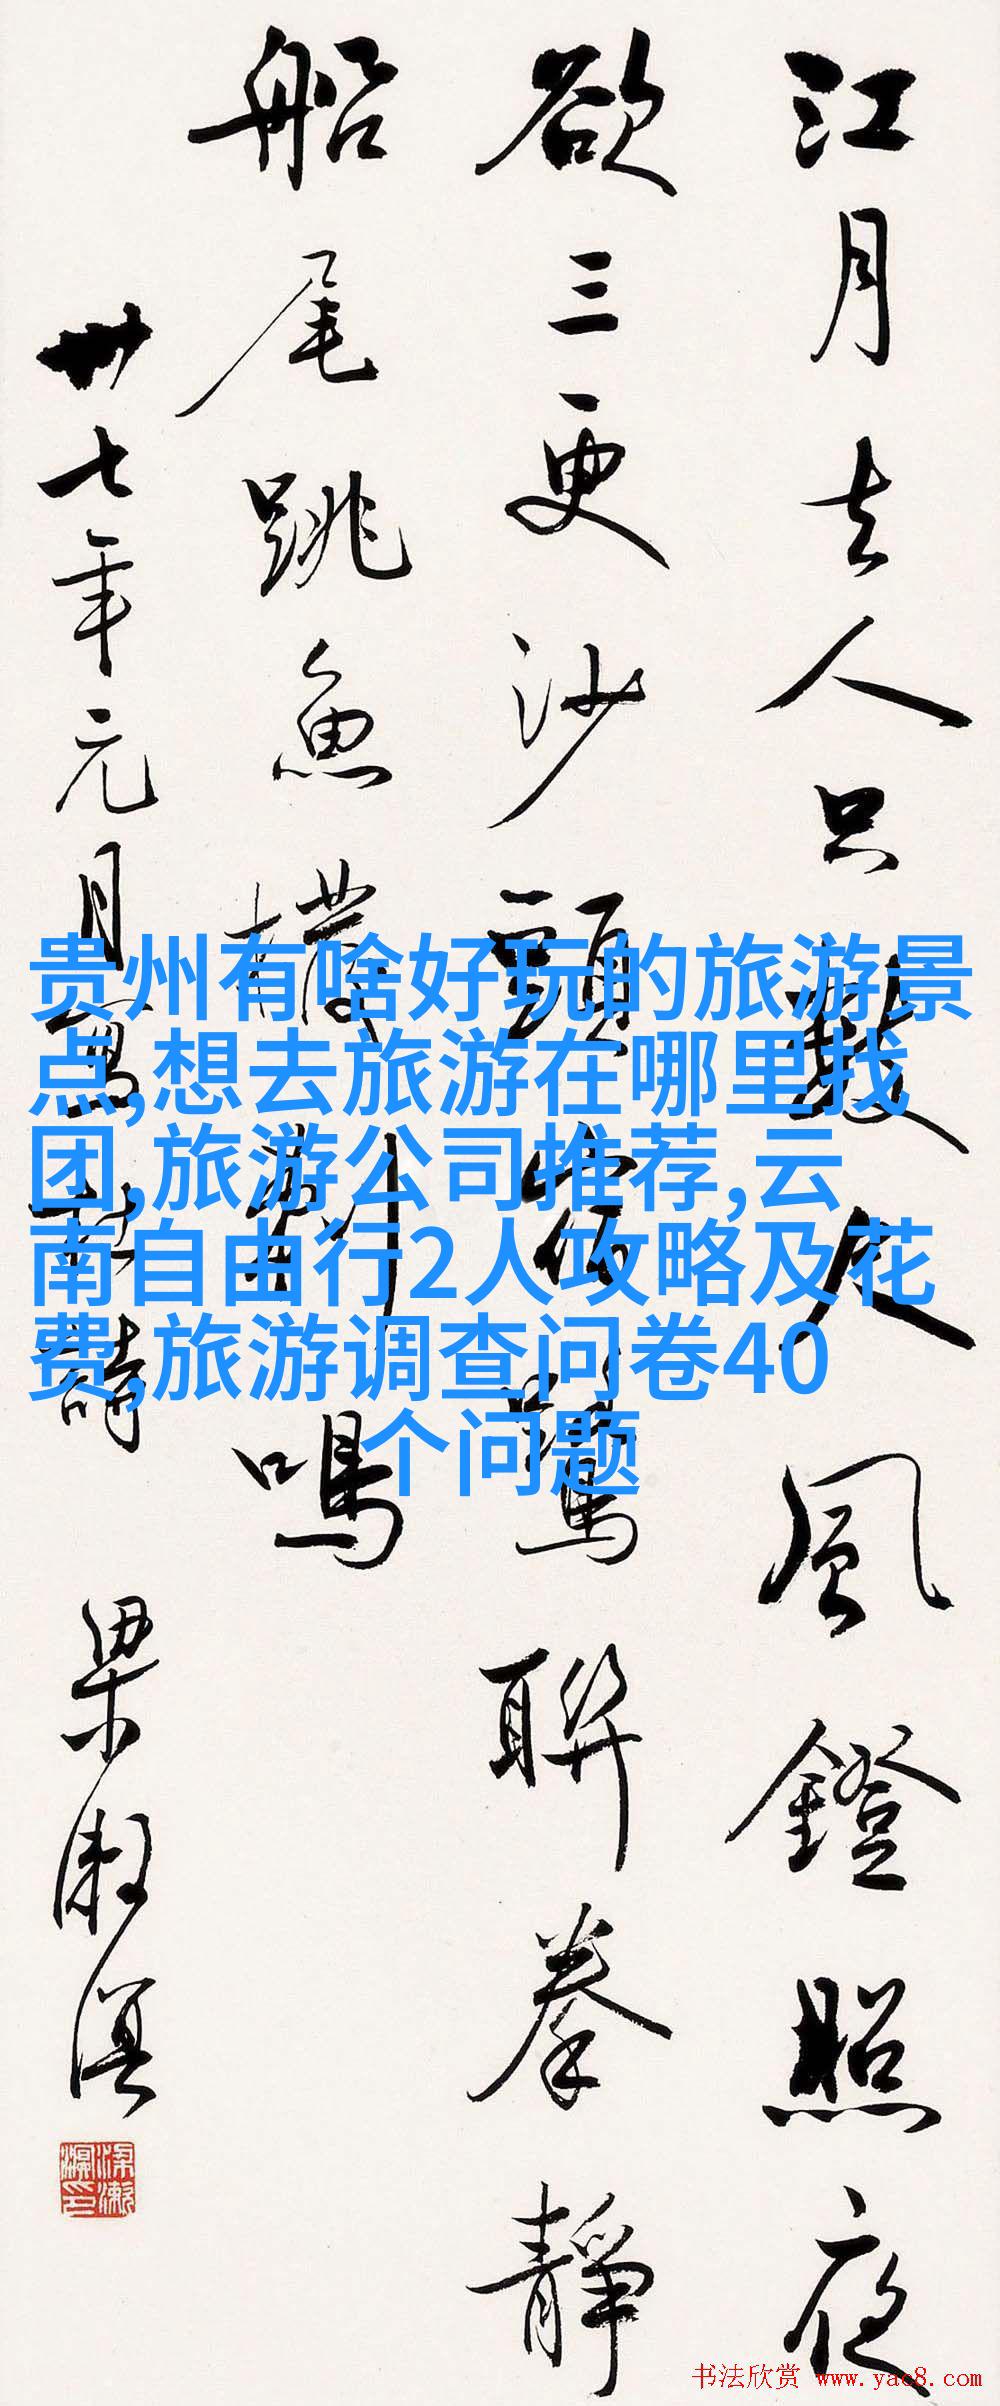 江月去人只數尺風鐙照夜
欲三更沙頭宿鷺聯拳靜
船尾跳魚撥剌鳴
卅七年元月寫杜詩
梁漱溟
贵州有啥好玩的旅游景
点,想去旅游在哪里找
团,旅游公司推荐,云
南自由行2人攻略及花
费,旅游调查问卷40
个问题
书法欣赏 www.yac8.com